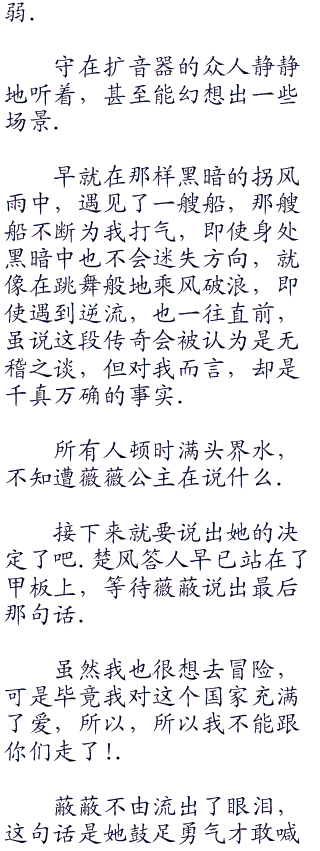 弱.
守在扩音器的众人静静
地听着，甚至能幻想出一些
场景.
早就在那样黑暗的拐风
雨中，遇见了一艘船，那艘
船不断为我打气，即使身处
黑暗中也不会迷失方向，就
像在跳舞般地乘风破浪，即
使遇到逆流，也一往直前，
虽说这段传奇会被认为是无
稽之谈，但对我而言，却是
千真万确的事实.
所有人顿时满头界水，
不知遭薇薇公主在说什么.
接下来就要说出她的决
定了吧.楚风答人早已站在了
甲板上，等待薇蔽说出最后
那句话.
虽然我也很想去冒险，
可是毕竟我对这个国家充满
了爱，所以，所以我不能跟
你们走了!.
蔽蔽不由流出了眼泪，
这句话是她鼓足勇气才敢喊